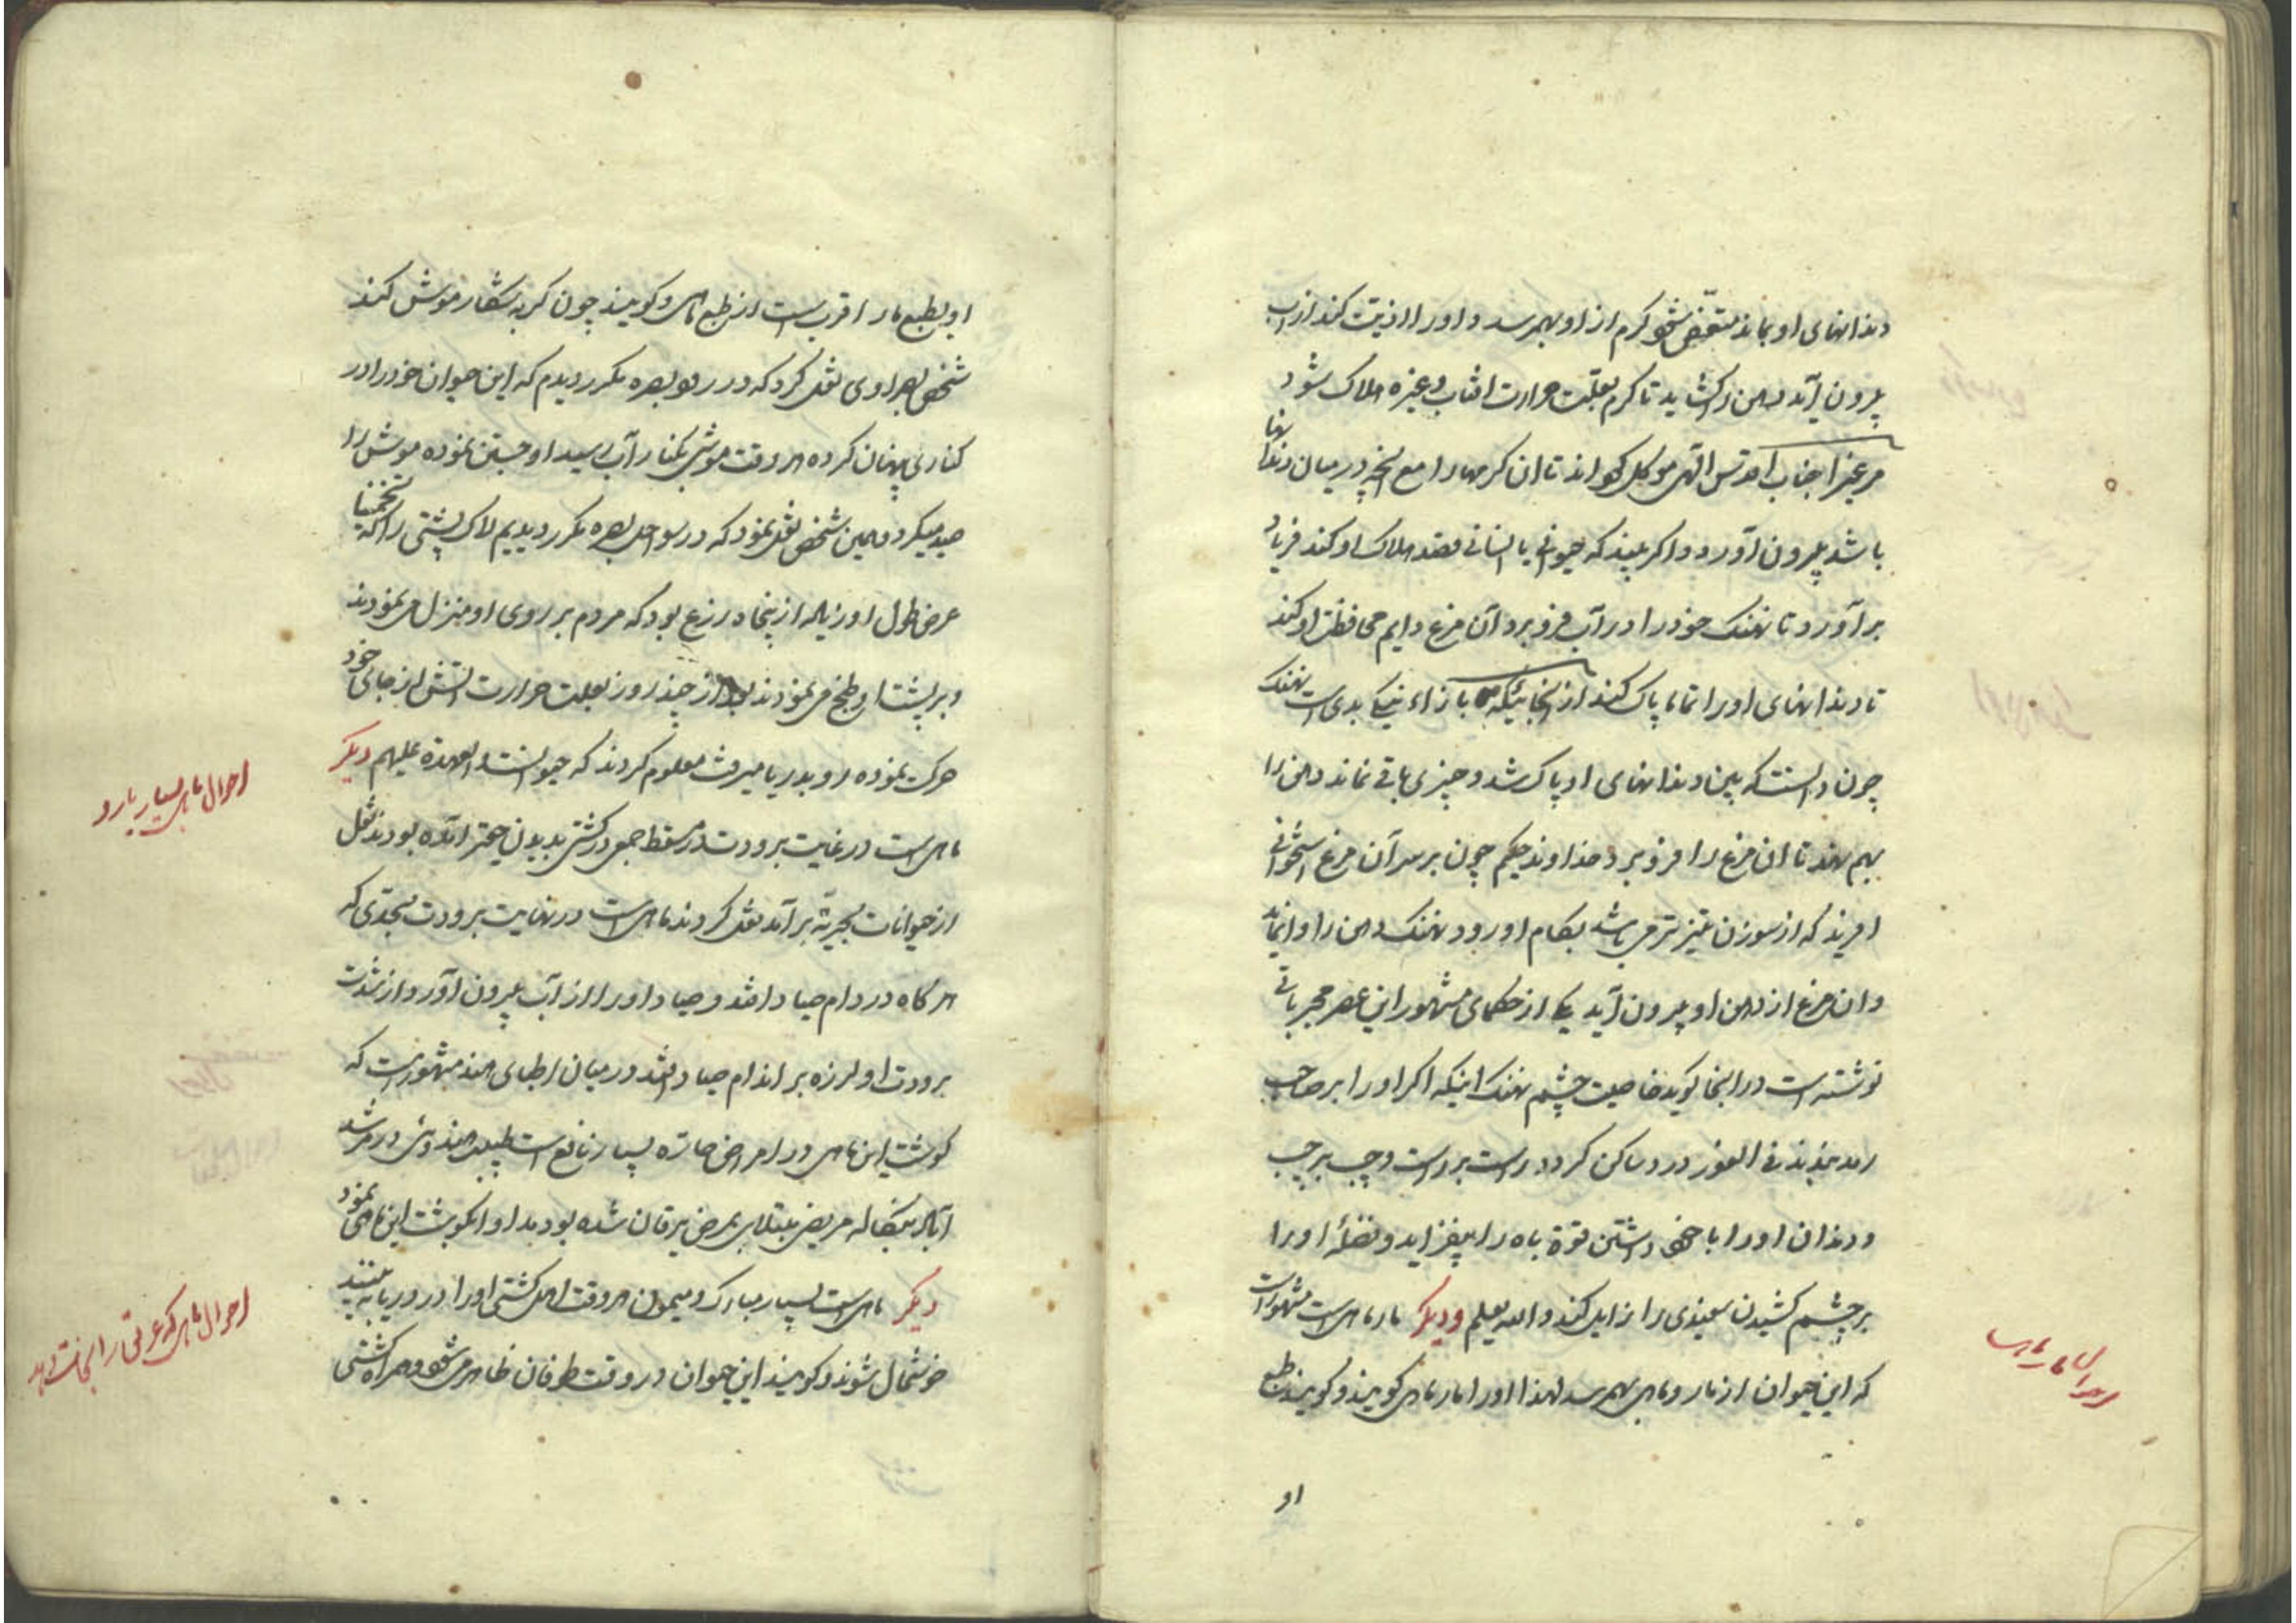 دندانهای او بماند متعفن شود کرم از او بهمرسد و او را اذیت کند از آب
بیرون آید دهن را کشاید تا کرم بعلت حرارت افتاب و غیره هلاک شود
مرغی از جناب اقدس الهی موکل کرده اند تا ان کرمها را مع انچه در میان دندانها
باشد بیرون آورد و اگر بیند که حیوانی یا انسانی قصد هلاک او کند فریاد
برآورد تا نهنک خود را در آب فرو برد و آن مرغ دایم محافظت او کند
تا دندانهای او را تماما پاک کند از انجائیکه بازاء نیکی بدی است نهنک
چون دانست که بین دندانهای او پاک شد و چیزی باقی نماند دهن را
بهم نهد تا ان مرغ را فرو برد خداوند حکیم چون بر سر آن مرغ استخوانی
افریند که از سوزن تیزتر می باشد بکام او رود نهنک دهن را وا نماید
و ان مرغ از دهن او بیرون آید یکی از حکمای مشهور این عصر مجرباتی
نوشته است در انجا کوید خاصیت چشم نهنک اینکه اکر او را بر صاحب
رمد بندند فی الفور درد ساکن کردد راست بر راست و چپ بر چپ
و دندان او را با خود داشتن قوة باه را بیفزاید و فضلهٔ او را
بر چشم کشیدن سفیدی را زایل کند والله یعلم و دیکر مار ماهی است مشهور است
که این حیوان از مار و ماهی بهمرسد لهذا او را مار ماهی کویند و کویند طبع
احوال مار ماهی
او
او بطبع مار اقرب است از طبع ماهی و کویند چون کربه شکار موش کند
شخص بصراوی نقل کرد که در بصره مکرر دیدم که این حیوان خود را در
کناری پنهان کرده هر وقت موشی بکنار آب رسید او جستن نموده موش را
صید میکرد و همین شخص نقل نمود که در سواحل بصره مکرر دیدیم لاک پشتی را که تخمینا
عرض و طول او زیاده از پنجاه ذرع بود که مردم بر روی او منزل می نمودند
و بر پشت او طبخ می نمودند بعد از چند روز بعلت حرارت اتش از جای خود
حرکت نموده رو بدریا میرفت معلوم کردند که حیوانست العهدة علیهم دیکر
ماهی است در غایت برودت در مسقط جمعی در کشتی بدیدن حقیر امده بودند نقل
از حیوانات بحریه برآمد نقل کردند ماهی است در نهایت برودت بحدی که
هر کاه در دام صیاد افتد و صیاد او را از آب بیرون آورد از شدت
برودت او لرزه بر اندام صیاد افتد در میان اطبای هند مشهور است که
کوشت این ماهی در امراض حاره بسیار نافع است طبیب هندوئی در مرشد
آباد بنکاله مریض مبتلای بمرض یرقان شده بود مداوا بکوشت این ماهی نمود
دیکر ماهی است بسیار مبارک و میمون هر وقت اهل کشتی او را در دریا ببینند
خوشحال شوند و کویند این حیوان در وقت طوفان ظاهر می شود و همراه کشتی
احوال ماهی بسیار بارد
احوال ماهی که غریق را نجات دهد